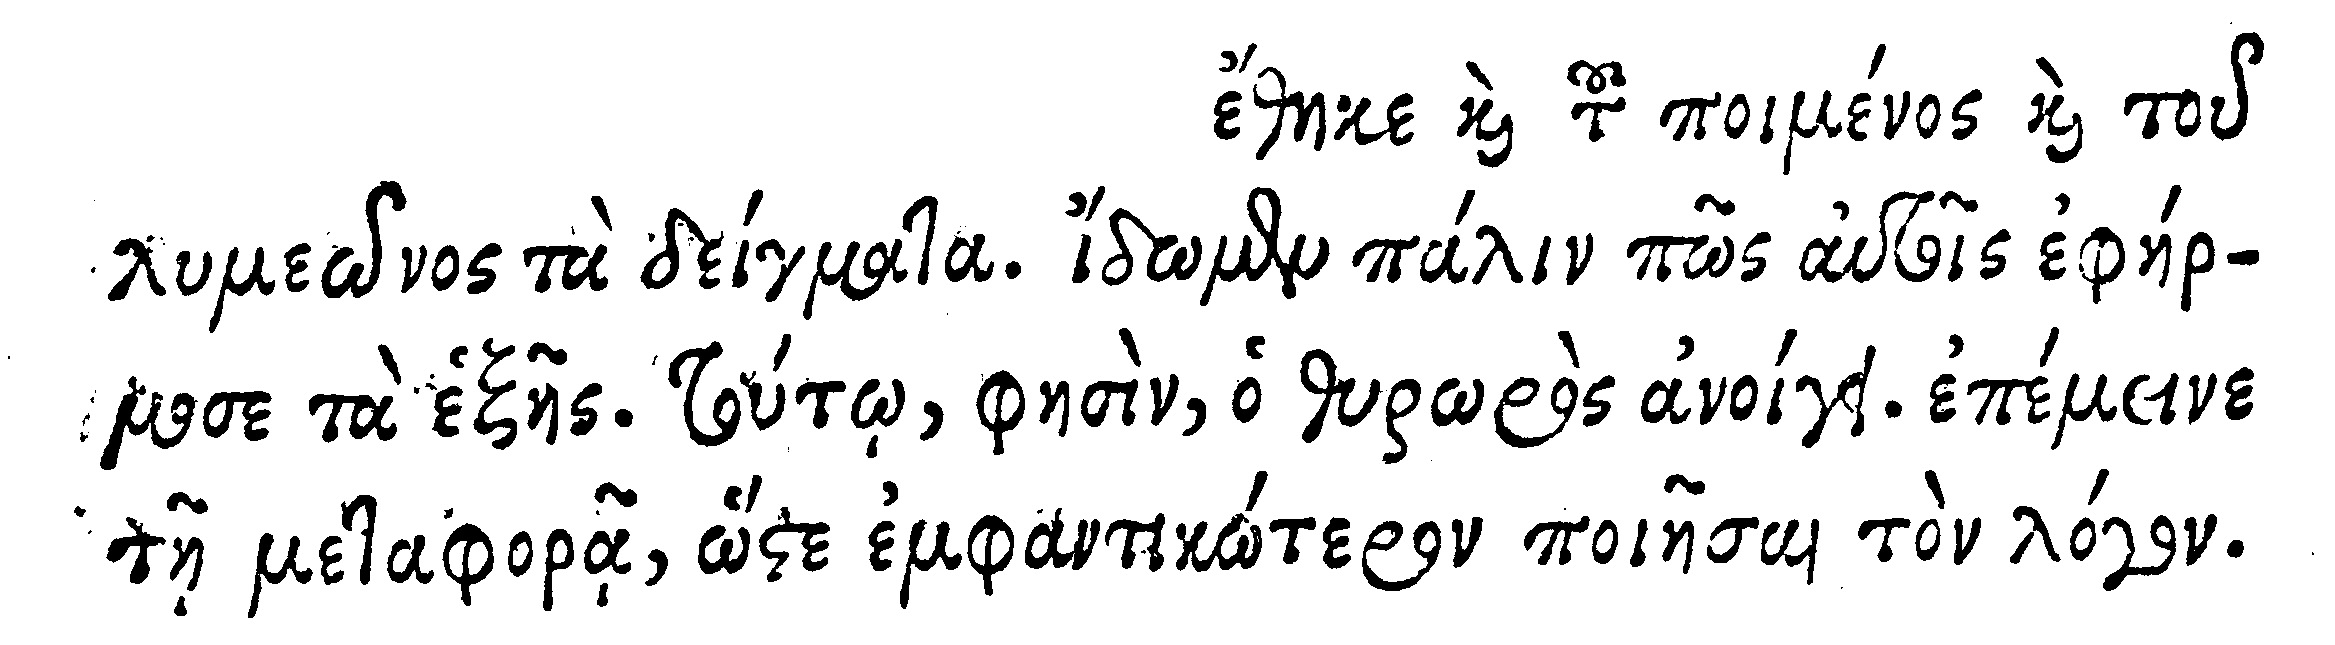 ἔθηκε καὶ τοῦ ποιμένος καὶ τοῦ
λυμεῶνος τὰ δείγματα. ἴδωμεν πάλιν πῶς αὐτοῖς ἐφήρ-
μοσε τὰ ἑξῆς. Τούτῳ, φησὶν, ὁ θυρωρὸς ἀνοίγει. ἐπέμεινε
τῇ μεταφορᾷ, ὥστε ἐμφαντικώτερον ποιῆσαι τὸν λόγον.